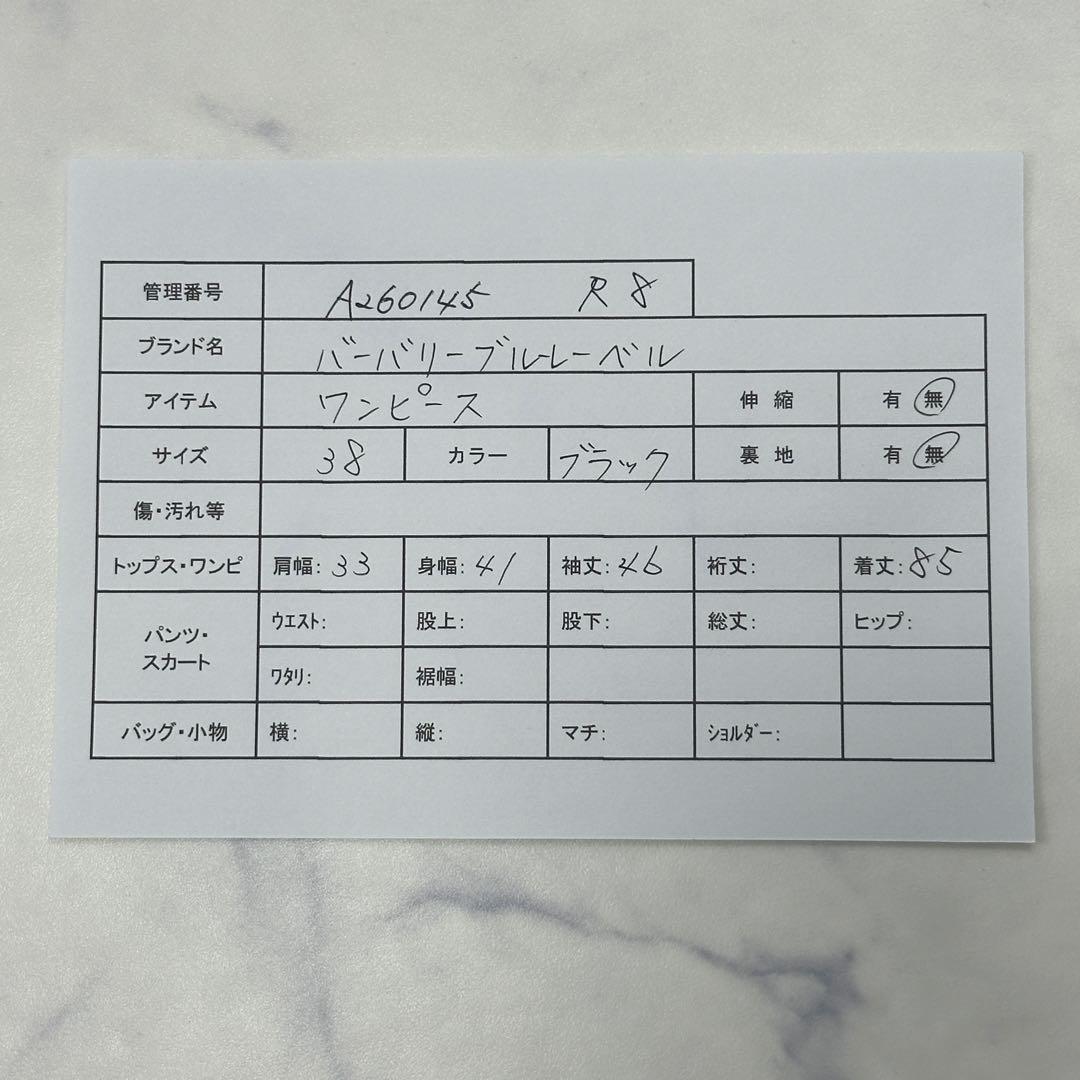 管理番号 A260145 R8
ブランド名 バーバリーブルーレーベル
アイテム ワンピース 伸縮 有 無
サイズ 38 カラー ブラック 裏地 有 無
傷・汚れ等
トップス・ワンピ 肩幅: 33 身幅: 41 袖丈: 46 裄丈: 着丈: 85
パンツ・スカート ウエスト: 股上: 股下: 総丈: ヒップ:
ワタリ: 裾幅:
バッグ・小物 横: 縦: マチ: ショルダー: